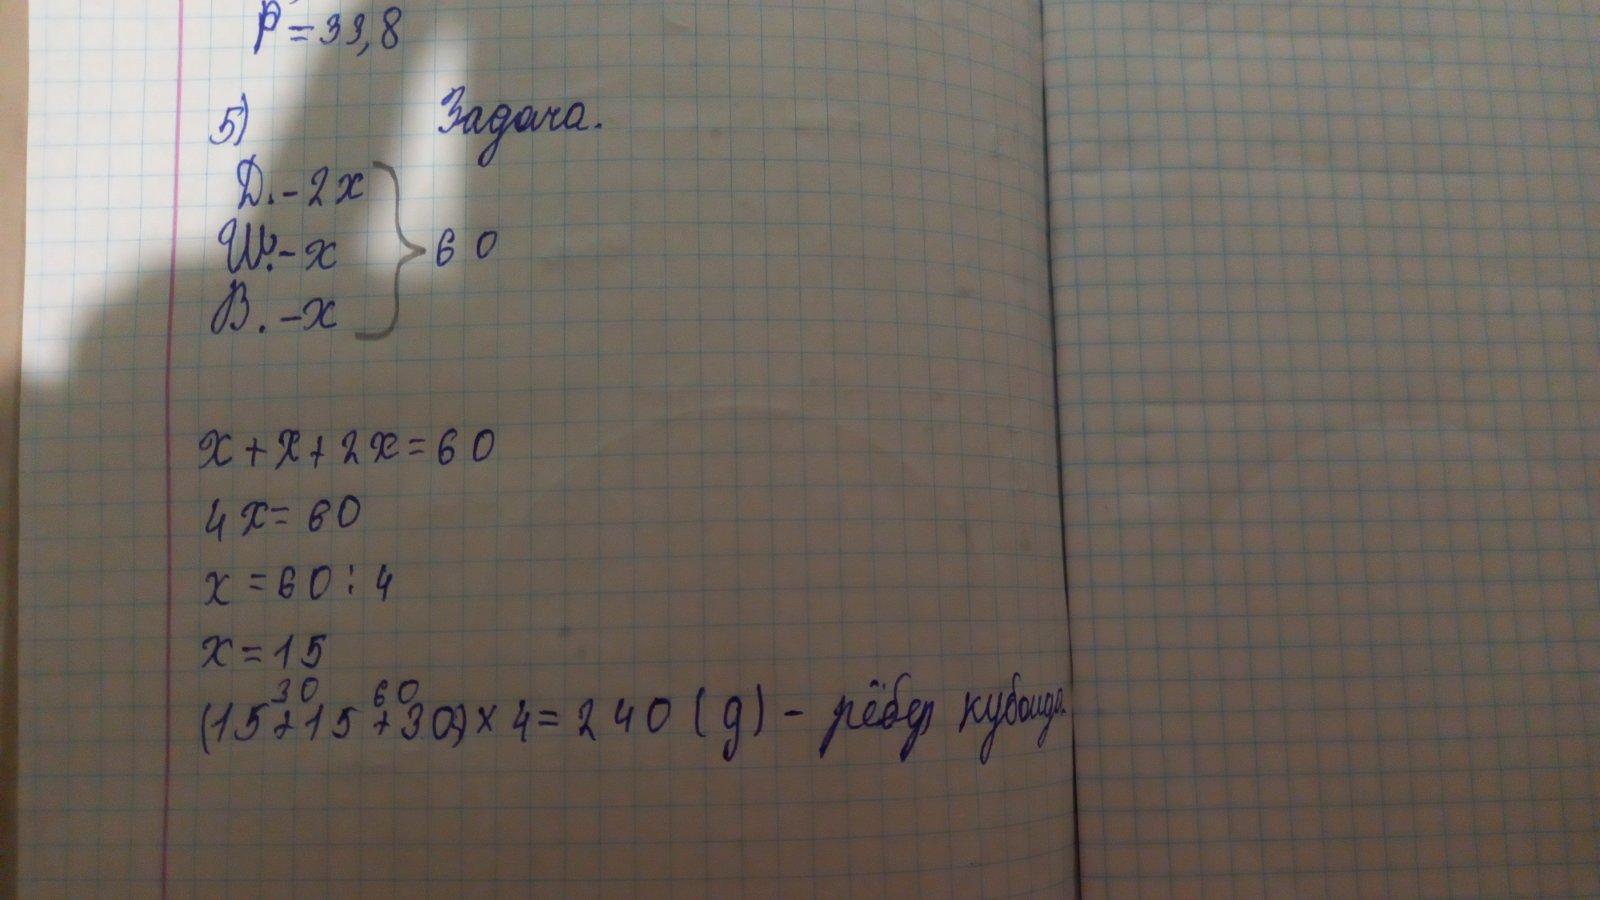 P=33,8
5) Задача.
Д. - 2x
Ш. - x
В. - x
60
x + x + 2x = 60
4x = 60
x = 60 : 4
x = 15
30 60
(15 + 15 + 30) × 4 = 240 (д) - рёбер кубоида.